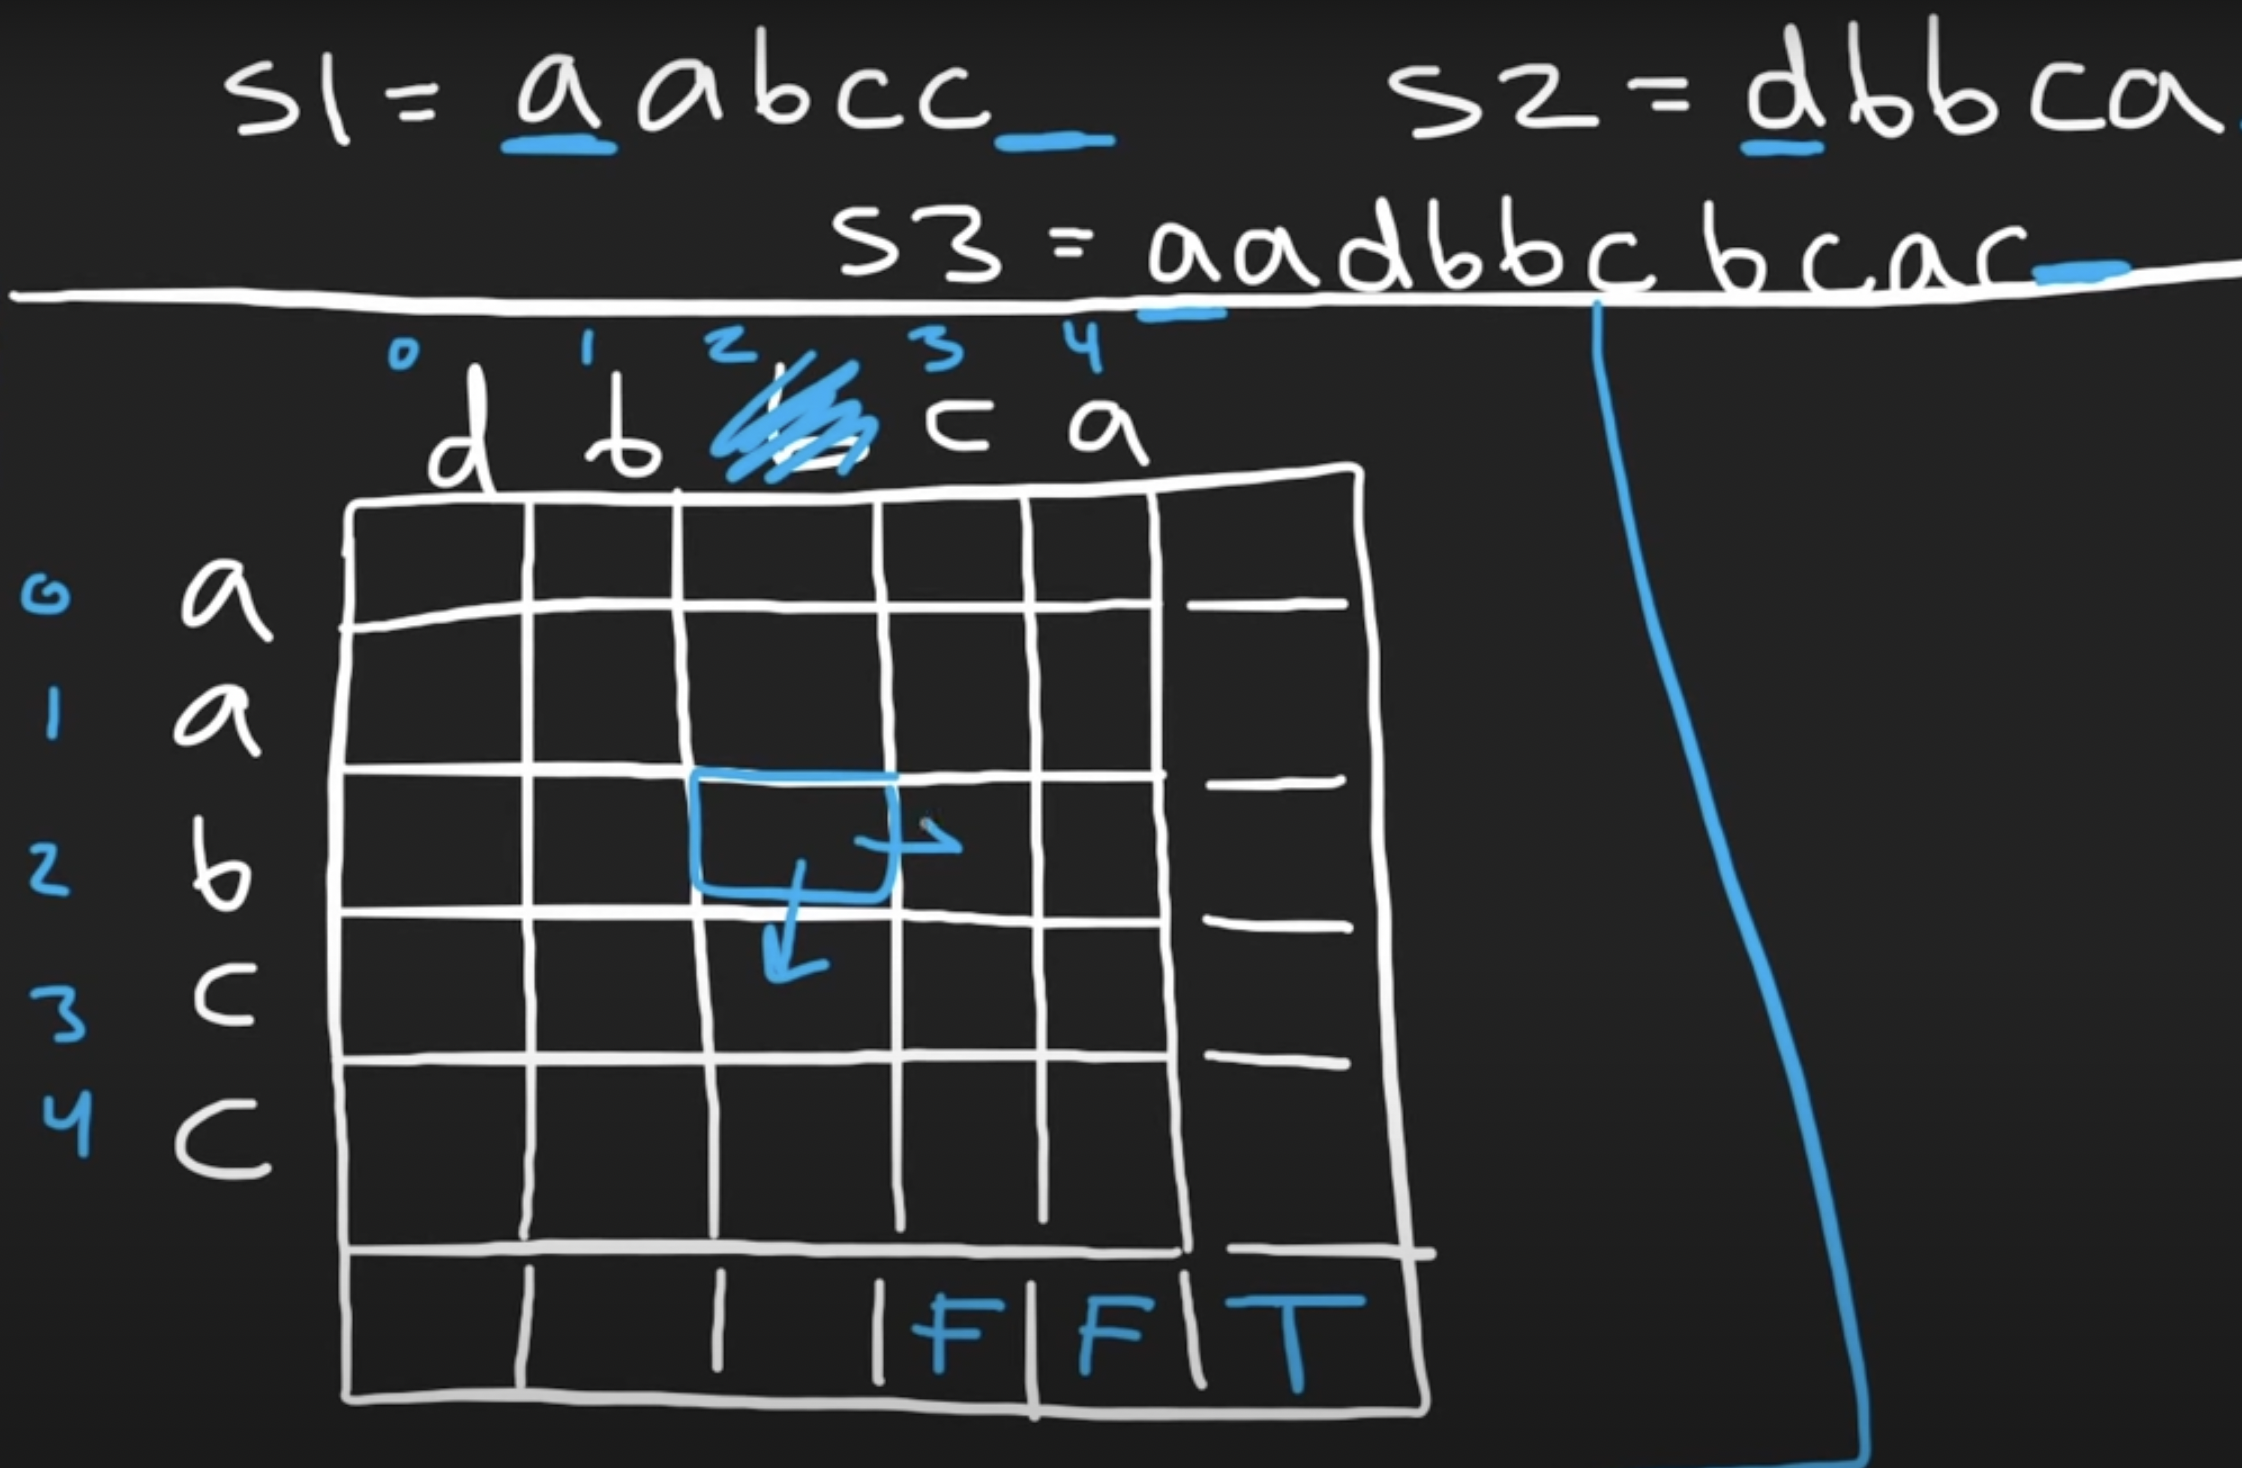 s1 = aabcc
s2 = dbbca
s3 = aadbbcbcac
0 1 2 3 4
d b c a
0 a
1 a
2 b
3 c
4 c
F F T